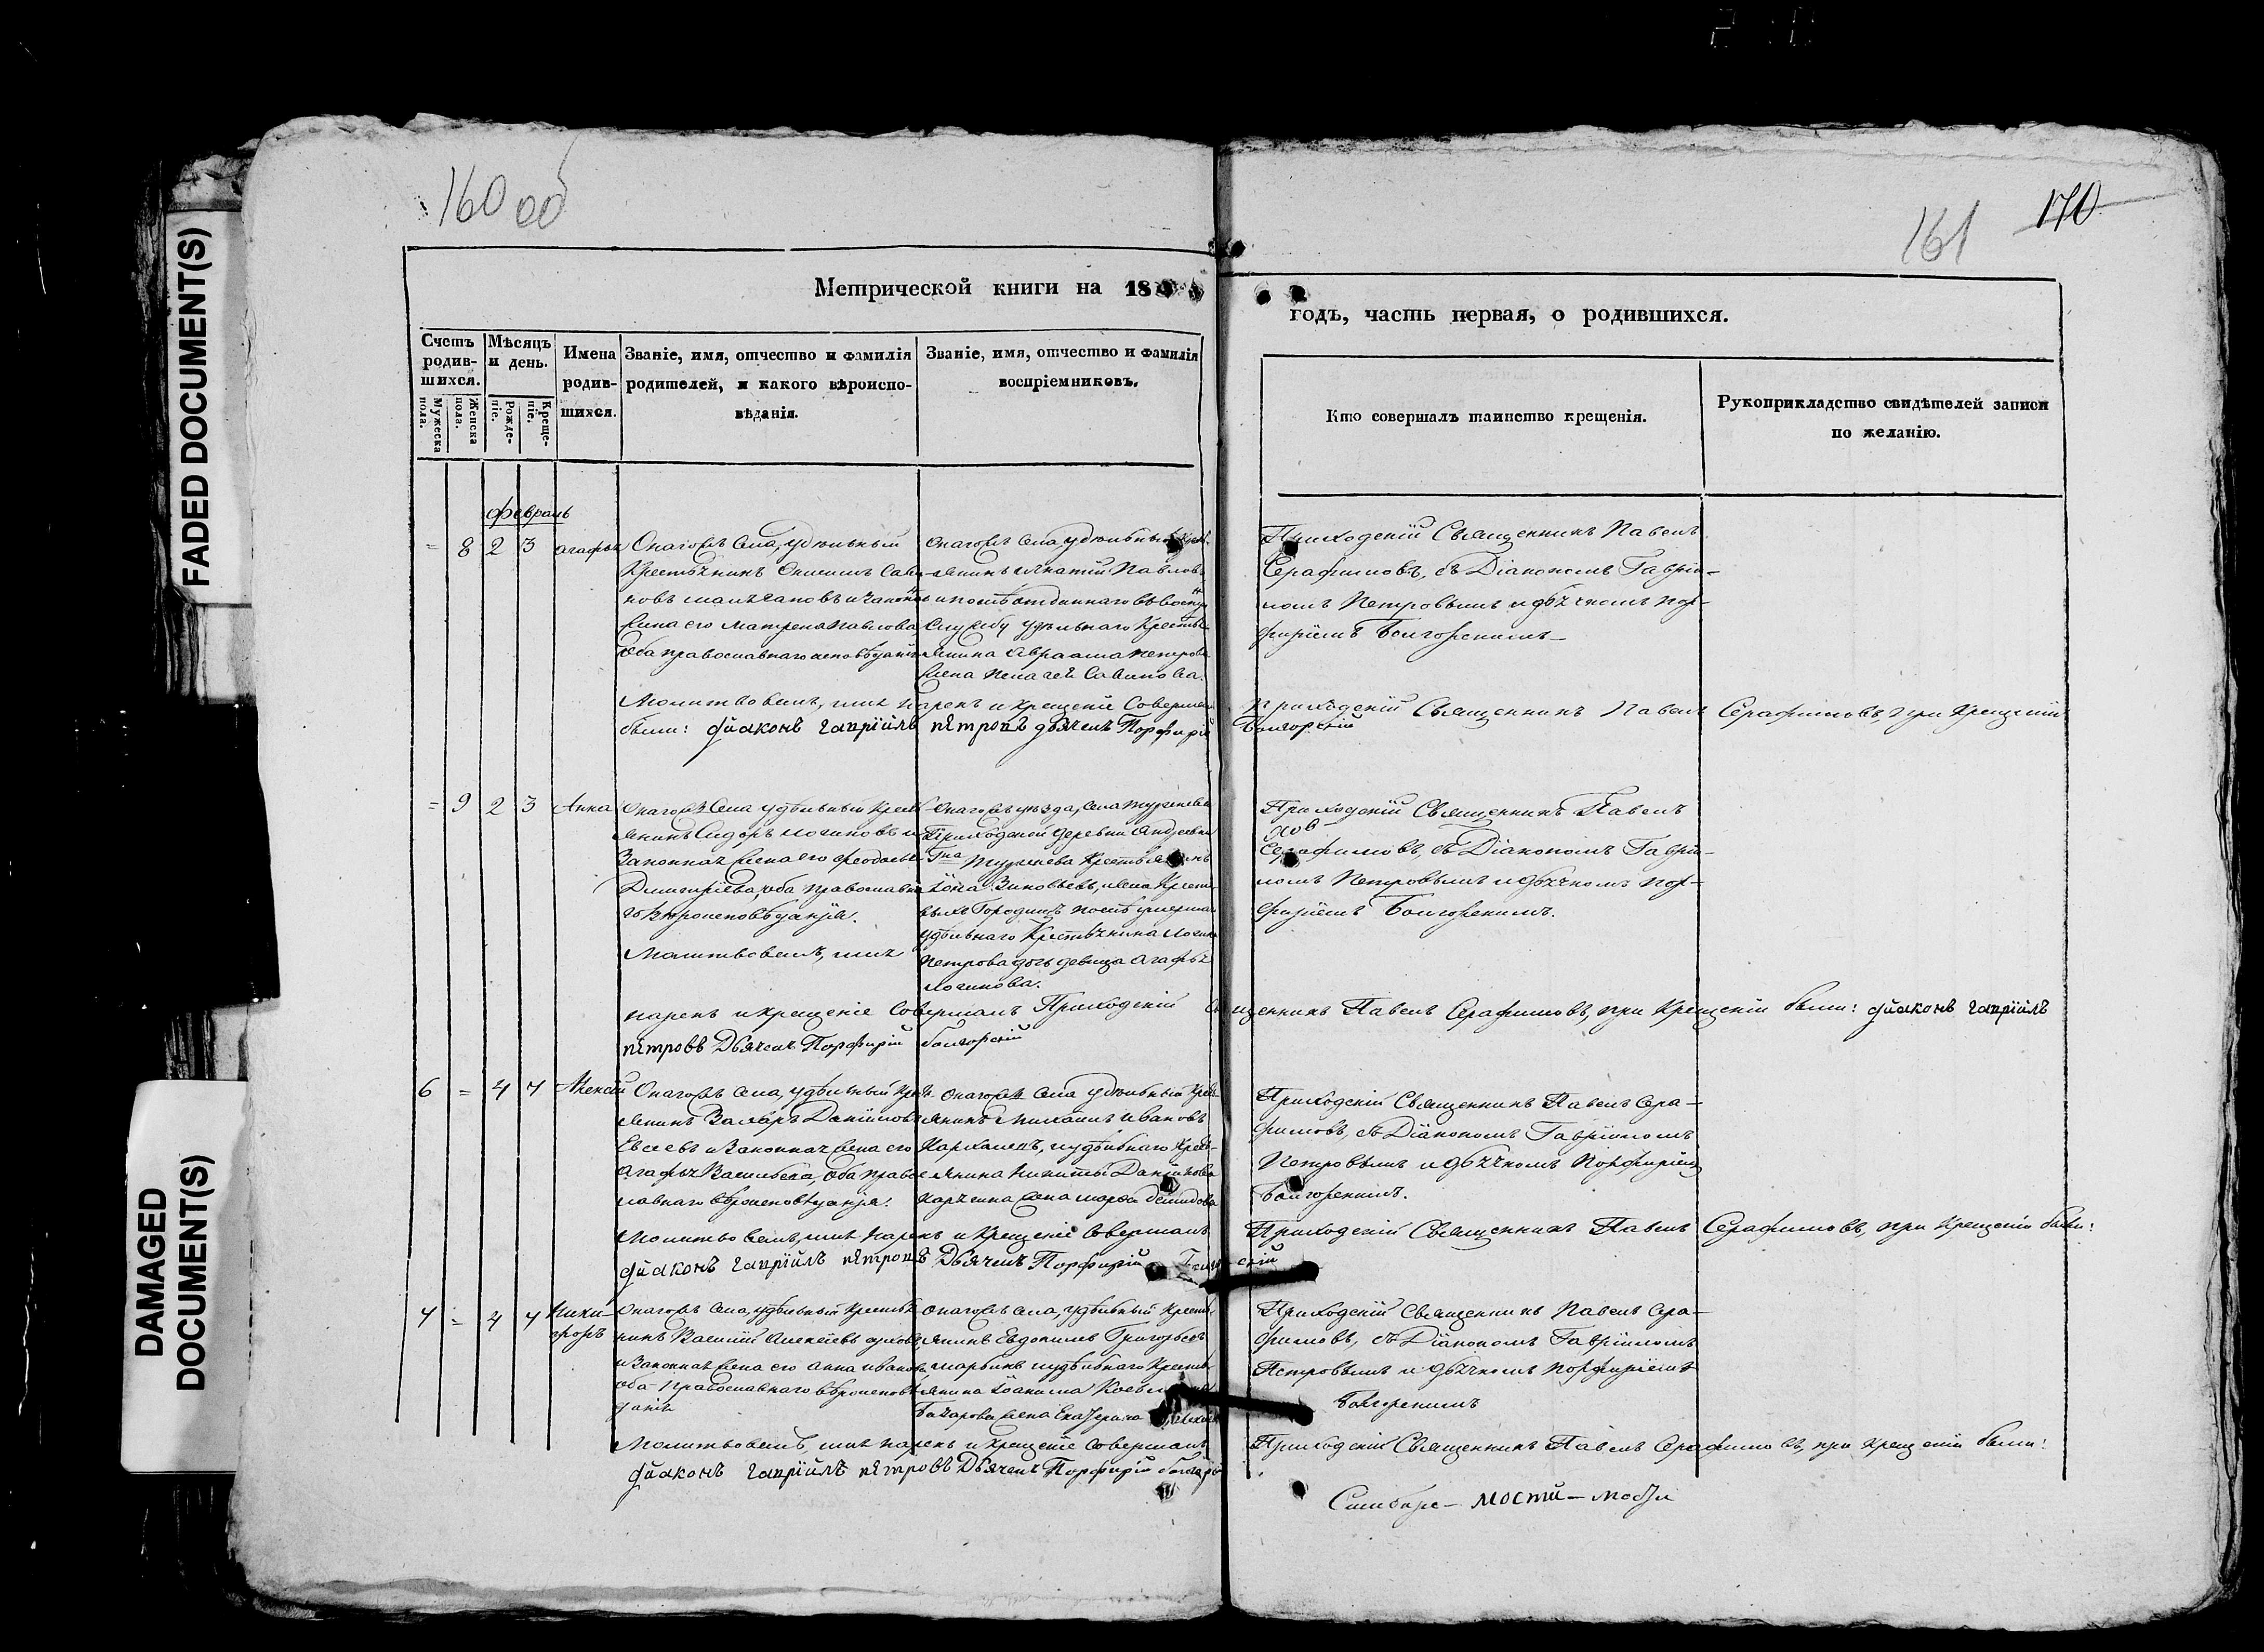 FADED DOCUMENT(S)
DAMAGED
DOCUMENT(S)
160 об
161 170
Метрической книги на 18
годъ, часть первая, о родившихся.
Счетъ родив-шихся.
Мужеска пола.
Женска пола.
Мѣсяцъ и день.
Рожде-ніе.
Креще-ніе.
Имена родив-шихся.
Званіе, имя, отчество и фамилія
родителей, и какого вѣроиспо-
вѣданія.
Званіе, имя, отчество и фамилія
воспріемниковъ.
Кто совершалъ таинство крещенія.
Рукоприкладство свидѣтелей записи
по желанію.
Февраль
= 8 2 3 Агафья
Онагожъ села, удѣльный
Крестьянинъ
законная
жена его Матрена Павлова
оба православнаго исповѣданія
Онагожъ села, удѣльный Кресть-
янинъ Игнатій Павловъ
службу удѣльнаго Кресть-
янина Авраама Петрова
жена Пелагея Савинова.
Приходскій Священникъ Павелъ
Серафимовъ, съ Діакономъ Гаврiи-
ломъ Петровымъ и дьячкомъ Пор-
фиріемъ Болгорскимъ
Молитвовалъ, имя нарекъ и крещеніе совершалъ Приходскій Священникъ Павелъ Серафимовъ, при крещеніи
были: діаконъ Гавріилъ Петровъ дьячекъ Порфирій Болгорскій
= 9 2 3 Анна
Онагожъ села удѣльный Кресть-
янинъ Сидоръ Логиновъ и
законная жена его Феодосья
Димитріева, оба православна-
го вѣроисповѣданія.
Онагожъ уѣзда, села Тургенева
Приходской деревни Андреевки
Гна Тургенева Крестьянинъ
Іона Зиновьевъ,
удѣльнаго Крестьянина Логина
Петрова дочь девица Агафья
Логинова.
Приходскій Священникъ Павелъ
Серафимовъ, съ Діакономъ Гаврiи-
ломъ Петровымъ и дьячкомъ Пор-
фиріемъ Болгорскимъ.
Молитвовалъ, имя
нарекъ и крещеніе совершалъ Приходскій Священникъ Павелъ Серафимовъ, при крещеніи были: діаконъ Гавріилъ
Петровъ Дьячекъ Порфирій Болгорскій
6 = 4 4 Алексѣй
Онагожъ села, удѣльный Кресть-
янинъ Захаръ Даниловъ
Евсеевъ и законная жена его
Агафья Васильева, оба право-
славнаго вѣроисповѣданія.
Онагожъ села удѣльный Кресть-
янинъ Михаилъ Ивановъ
и удѣльнаго Кресть-
янина Никиты Данилова
жена Марфа Демидова
Приходскій Священникъ Павелъ Сера-
фимовъ, съ Діакономъ Гавріиломъ
Петровымъ и дьячкомъ Порфиріемъ
Болгорскимъ.
Молитвовалъ, имя нарекъ и крещеніе совершалъ Приходскій Священникъ Павелъ Серафимовъ, при крещеніи были:
діаконъ Гавріилъ Петровъ Дьячекъ Порфирій Болгорскій
= 4 4 Ники-
форъ
Онагожъ села, удѣльный Крестья-
нинъ Василій Алексѣевъ
и законная жена его Анна Иванова
оба православнаго вѣроисповѣ-
данія
Онагожъ села, удѣльный Кресть-
янинъ Евдокимъ Григорьевъ
и удѣльнаго Кресть-
янина Іоакима
жена Екатерина
Приходскій Священникъ Павелъ Сера-
фимовъ, съ Діакономъ Гавріиломъ
Петровымъ и дьячкомъ Порфиріемъ
Болгорскимъ
Молитвовалъ, имя нарекъ и крещеніе совершалъ Приходскій Священникъ Павелъ Серафимовъ, при крещеніи были:
діаконъ Гавріилъ Петровъ Дьячекъ Порфирій Болгорскій